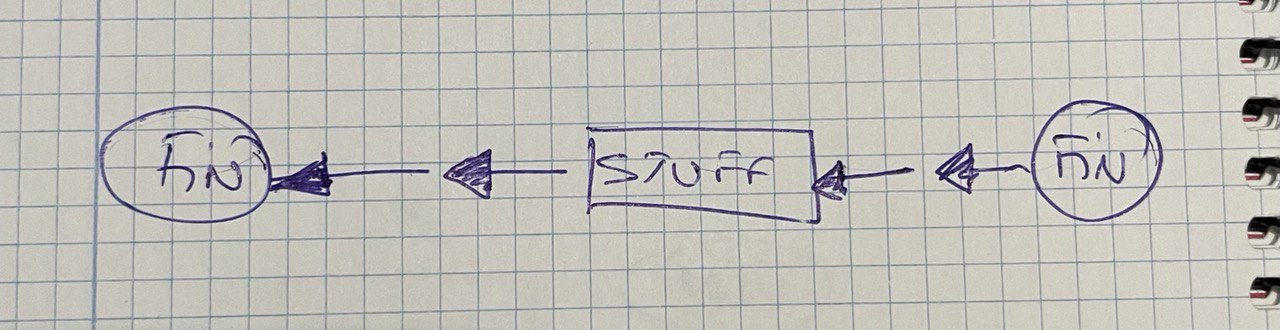 FIN
STUFF
FIN